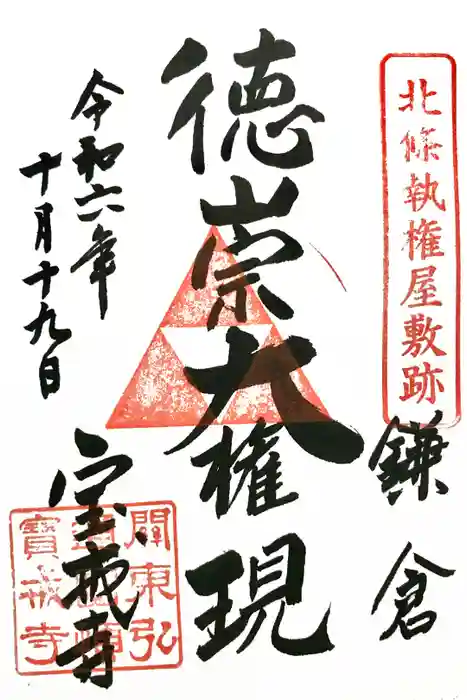 北條執権屋敷跡
鎌倉
徳崇大権現
令和六年
十月十九日
宝戒寺
關東弘
寶戒寺